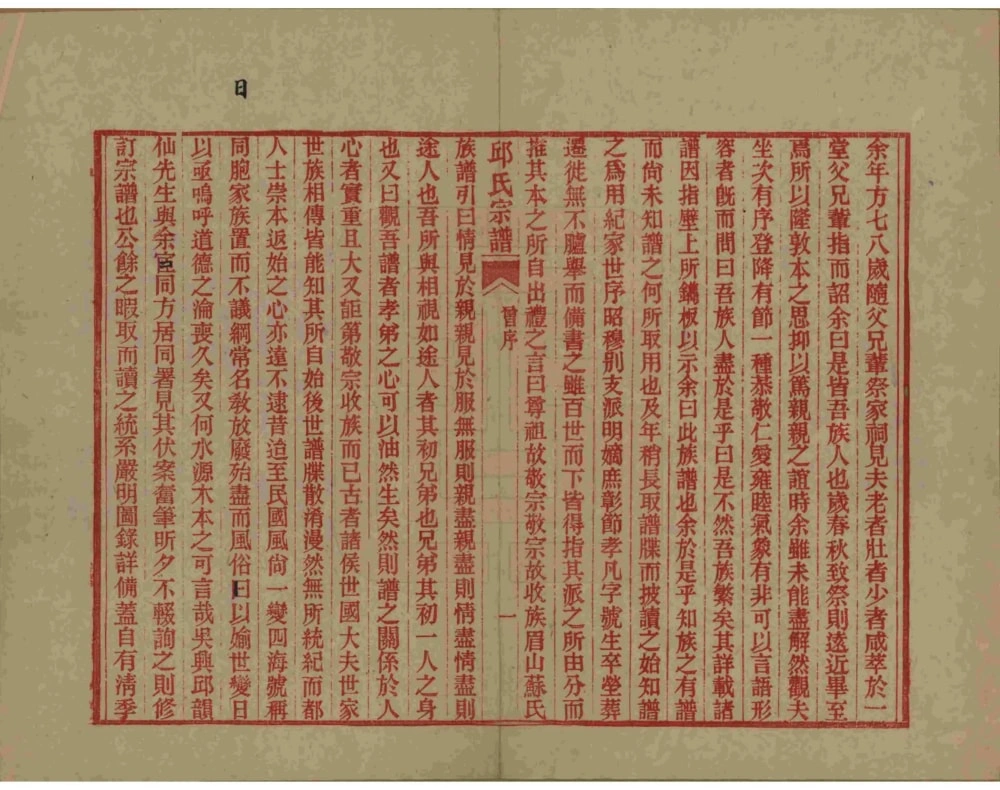 余年方七八歲隨父兄輩祭家祠見夫老者壯者少者咸萃於一
堂父兄輩指而詔余曰是皆吾族人也歲春秋致祭則遠近畢至
焉所以隆敦本之思抑以篤親親之誼時余雖未能盡解然觀夫
坐次有序登降有節一種恭敬仁愛雍睦氣象有非可以言語形
容者旣而問曰吾族人盡於是乎曰是不然吾族繁矣其詳載諸
譜因指壁上所鐫板以示余曰此族譜也余於是乎知族之有譜
而尙未知譜之何所取用也及年稍長取譜牒而披讀之始知譜
之爲用紀家世序昭穆別支派明嫡庶彰節孝凡字號生卒塋葬
遷徙無不臚舉而備書之雖百世而下皆得指其派之所由分而
推其本之所自出禮之言曰尊祖故敬宗敬宗故收族眉山蘇氏
邱氏宗譜 晉序 一
族譜引曰情見於親親見於服無服則親盡親盡則情盡情盡則
途人也吾所與相視如途人者其初兄弟也兄弟其初一人之身
也又曰觀吾譜者孝弟之心可以油然生矣然則譜之關係於人
心者實重且大又詎第敬宗收族而已古者諸侯世國大夫世家
世族相傳皆能知其所自始後世譜牒散淆漫然無所統紀而都
人士崇本返始之心亦遠不逮昔迨至民國風尙一變四海號稱
同胞家族置而不議綱常名教放廢殆盡而風俗日以媮世變日
以亟嗚呼道德之淪喪久矣又何水源木本之可言哉吳興邱韻
仙先生與余宦同方居同署見其伏案奮筆昕夕不輟詢之則修
訂宗譜也公餘之暇取而讀之統系嚴明圖錄詳備蓋自有淸季
日